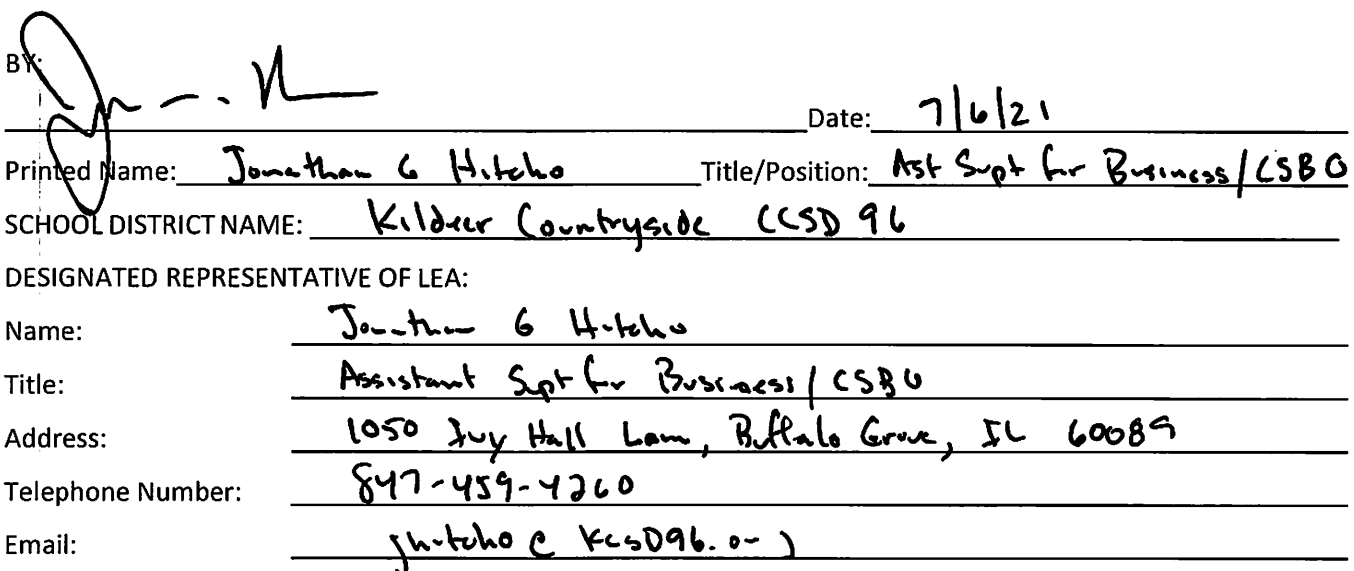 BY:
Date: 7/6/21
Printed Name: Jonathan G Hitcho Title/Position: Ast Supt for Business/CSBO
SCHOOL DISTRICT NAME: Kildeer Countryside CCSD 96
DESIGNATED REPRESENTATIVE OF LEA:
Name: Jonathan G Hitcho
Title: Assistant Supt for Business/CSBO
Address: 1050 Ivy Hall Lane, Buffalo Grove, IL 60089
Telephone Number: 847-459-4260
Email: jhitcho@KCSD96.org